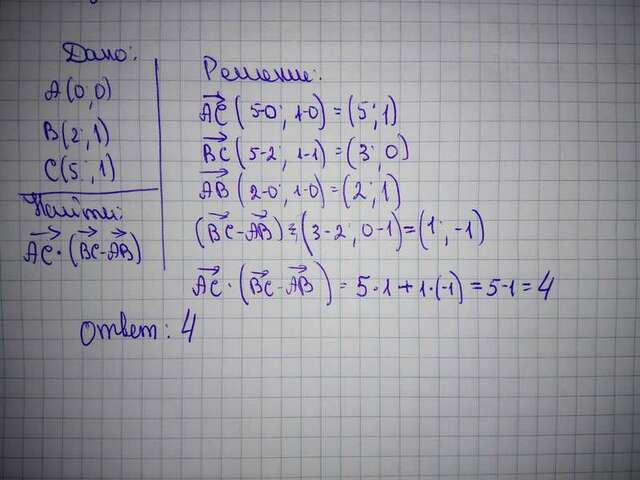 Дано:
A(0;0)
B(2;1)
C(5;1)
Найти:
AC·(BC-AB)
Решение:
AC(5-0; 1-0)=(5;1)
BC(5-2; 1-1)=(3;0)
AB(2-0; 1-0)=(2;1)
(BC-AB)=(3-2; 0-1)=(1;-1)
AC·(BC-AB)=5·1+1·(-1)=5-1=4
Ответ: 4